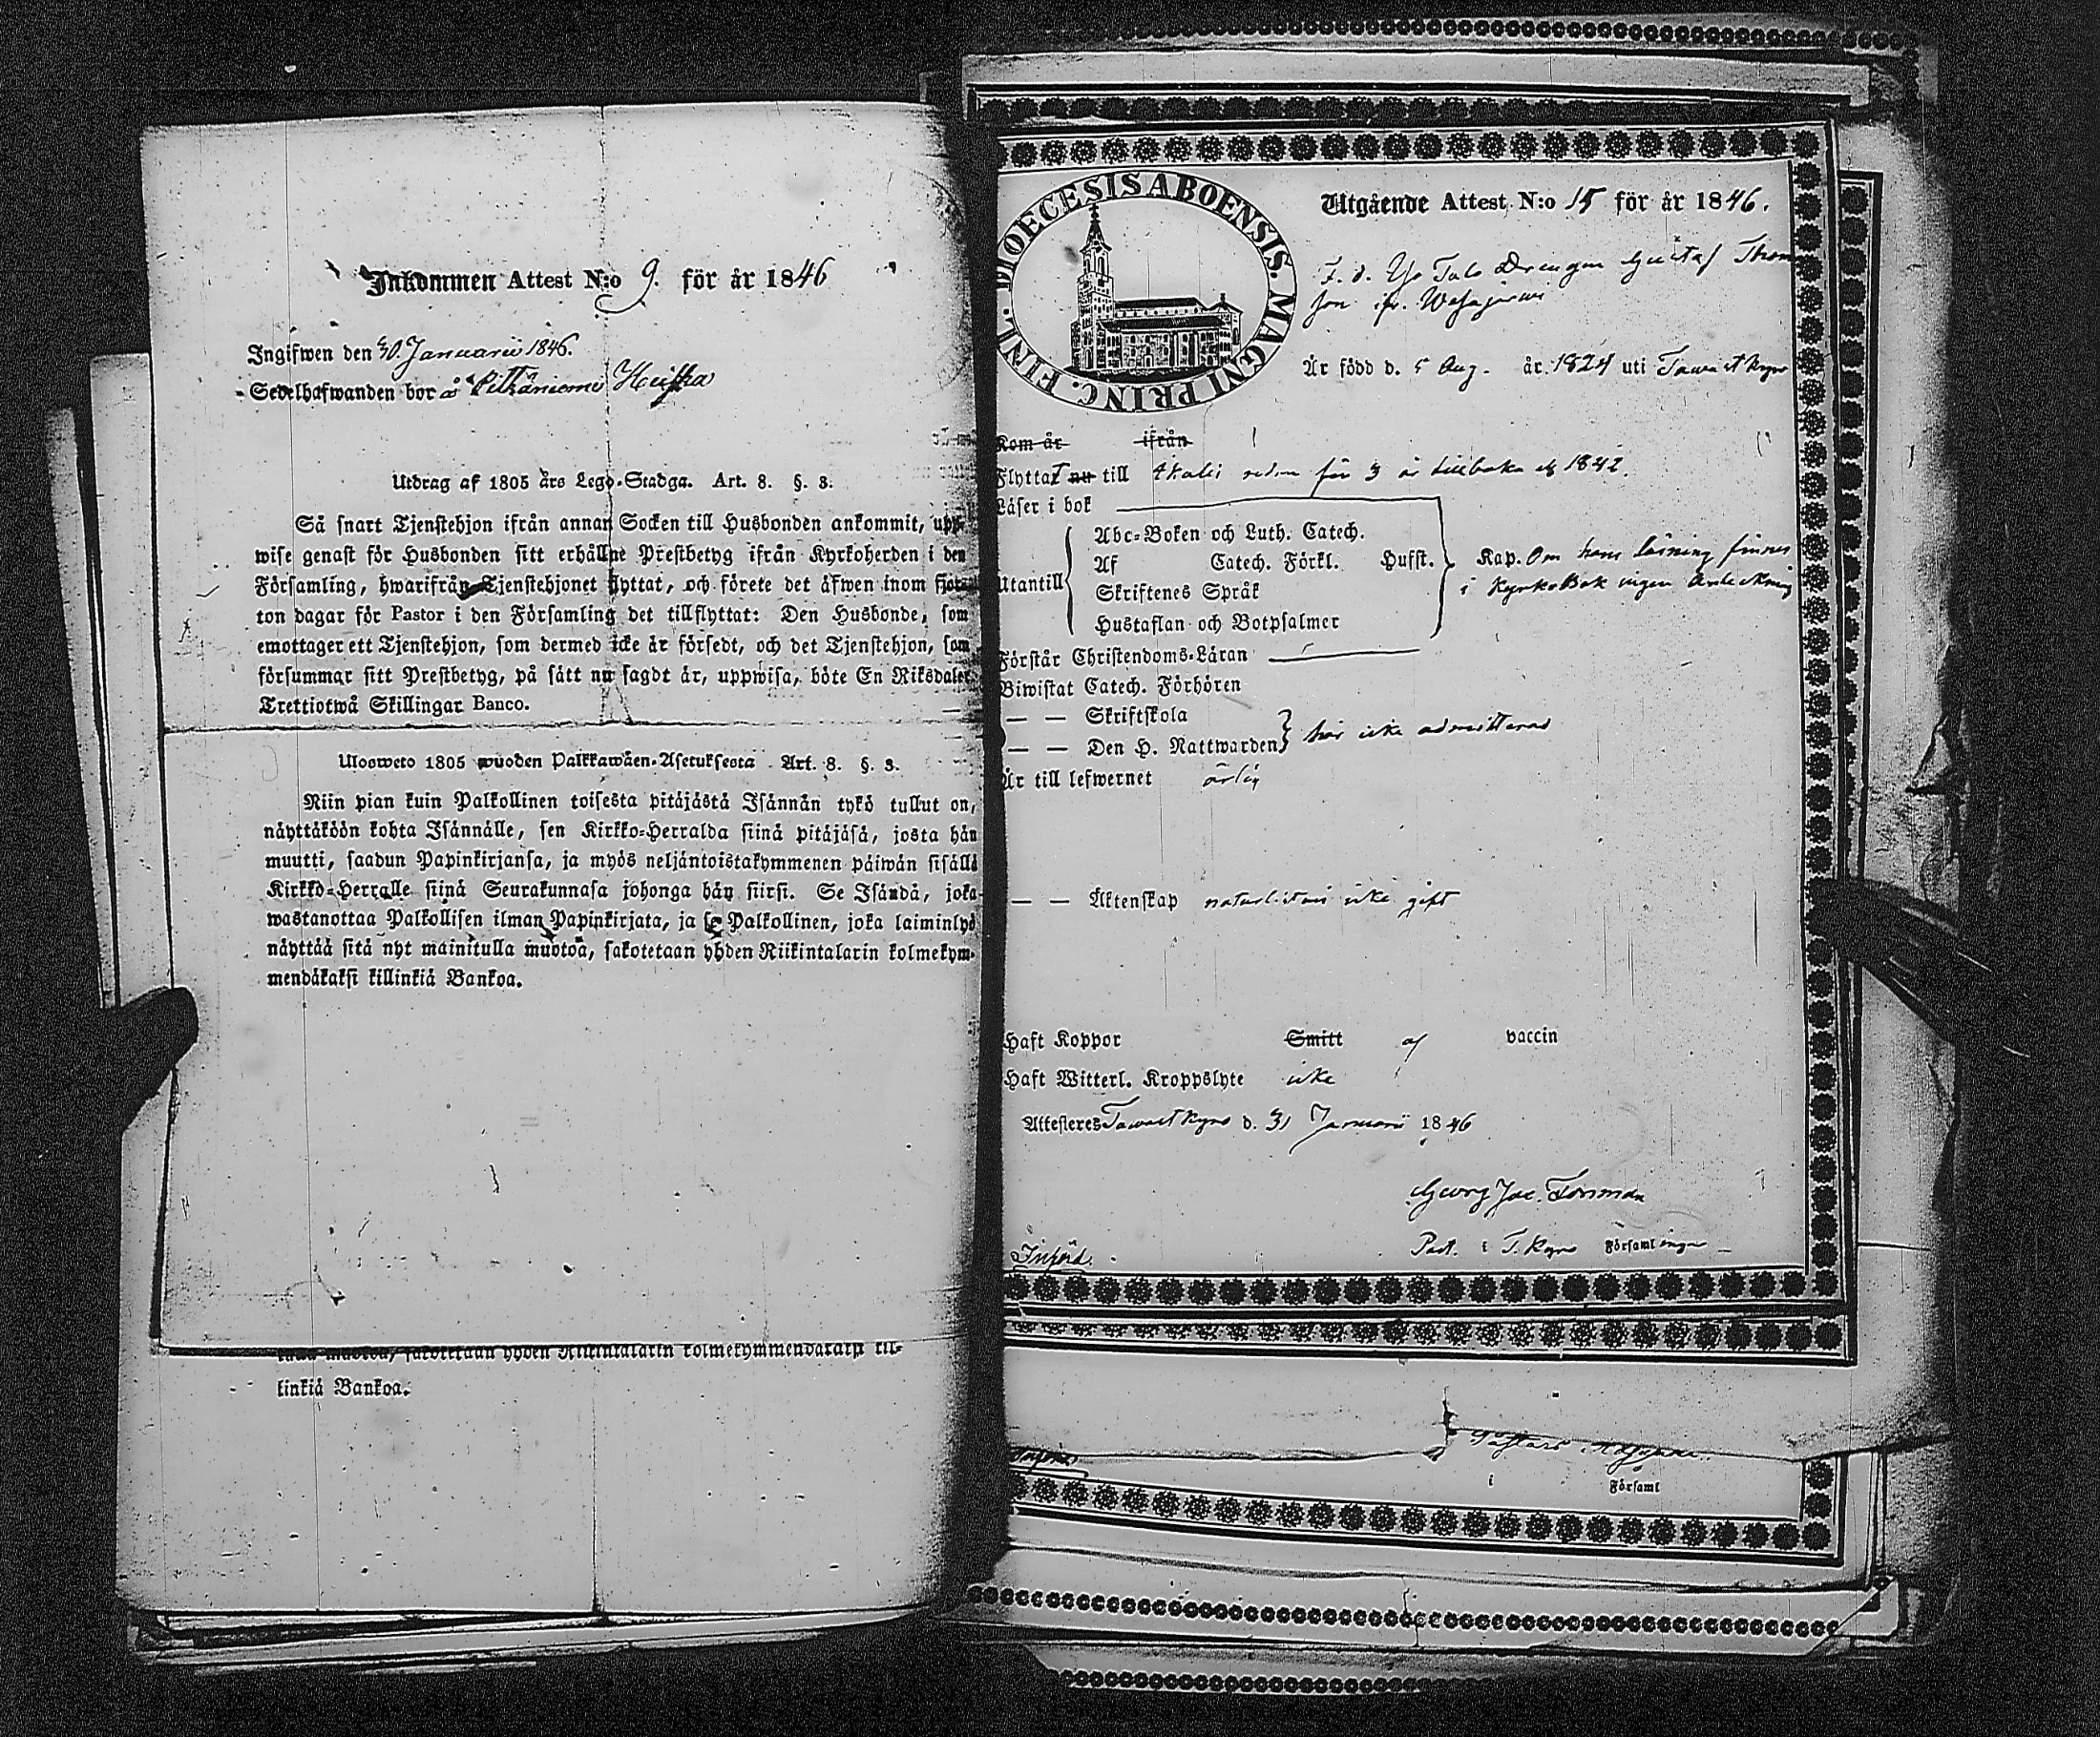 Inkommen Attest N:o 9. för år 1846
Ingifwen den 30. Januarii 1846.
Sedelhafwanden bor å Pitkäniemi Heiska
Utdrag af 1805 års Lego-Stadga. Art. 8. §. 3.
Så snart Tjenstehjon ifrån annan Socken till Husbonden ankommit, upp-
wise genast för Husbonden sitt erhållne Prestbetyg ifrån Kyrkoherden i den
Församling, hwarifrån Tjenstehjonet flyttat, och förete det äfwen inom fjor-
ton dagar för Pastor i den Församling det tillflyttat: Den Husbonde, som
emottager ett Tjenstehjon, som dermed icke är försedt, och det Tjenstehjon, som
försummar sitt Prestbetyg, på sätt nu sagdt är, uppwisa, böte En Riksdaler
Trettiotwå Skillingar Banco.
Ulosweto 1805 wuoden Palkkawäen-Asetuksesta Art. 8. §. 3.
Niin pian kuin Palkollinen toisesta pitäjästä Isännän tykö tullut on,
näyttäköön kohta Isännälle, sen Kirkko-Herralda siinä pitäjäsä, josta hän
muutti, saadun Papinkirjansa, ja myös neljäntoistakymmenen päiwän sisällä
Kirkko-Herralle siinä Seurakunnasa johonga hän siirsi. Se Isändä, joka
wastanottaa Palkollisen ilman Papinkirjata, ja se Palkollinen, joka laiminlyö
näyttää sitä nyt mainitulla muotoa, sakotetaan yhden Riikintalarin kolmekym-
mendäkaksi killinkiä Bankoa.
muotoa, sakotetaan yhden Riikintalarin kolmekymmendäkaksi kil-
kinkiä Bankoa.
DIOECESIS ABOENSIS. MAGNI PRINC. FINL.
Utgående Attest N:o 15 för år 1846.
F. d. Yso Talo Drengen Gustaf Thom
son fr. Wehajärwi
Är född d. 5 Aug. år 1824 uti Tawastkyro
Kom år ifrån
Flyttat nu till Ikalis redan för 3 år tillbaka 1842.
Läser i bok
Abc-Boken och Luth. Catech.
Af Catech. Förkl. Husst. Kap. Om hans läsning finnes
Utantill
Skriftenes Språk i KyrkoBok ingen Anteckning
Hustaflan och Botpsalmer
Förstår Christendoms-Läran
Biwistat Catech. Förhören
— — Skriftskola
— — Den H. Nattwarden har icke admitteras
Är till lefwernet ärlig
— — Äktenskap icke gift
Haft Koppor Smitt af vaccin
Haft Witterl. Kroppslyte icke
Attesteres Tawastkyro d. 31 Januarii 1846
Georg Jac. Forsman
Past. i T. Kyro Församlingar
Införd.
i Församl